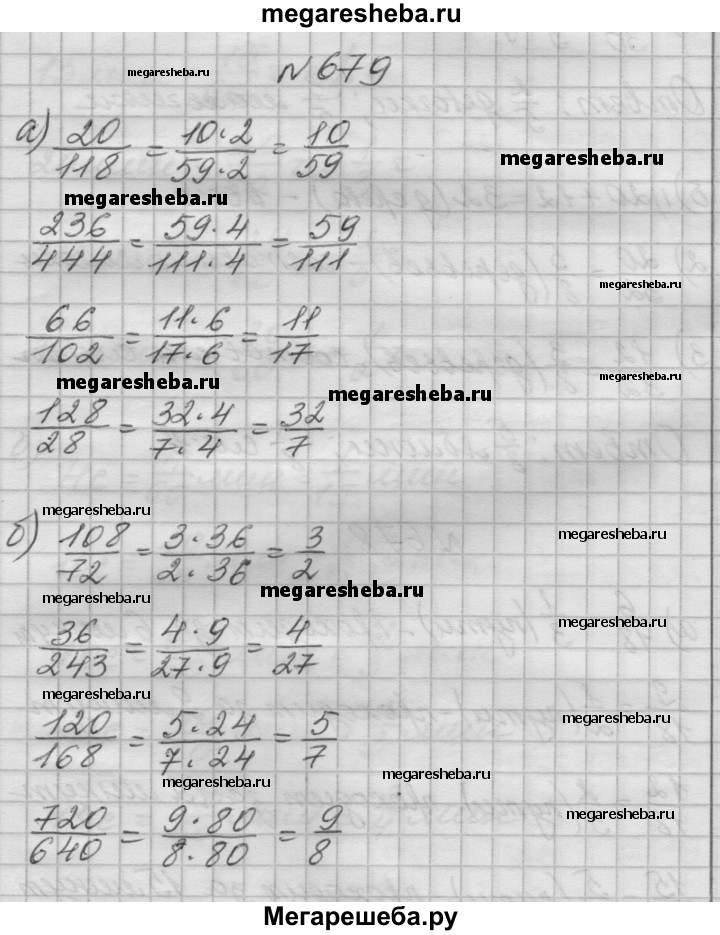 megaresheba.ru
megaresheba.ru №679
а) 20/118 = 10·2/59·2 = 10/59
megaresheba.ru
megaresheba.ru
236/444 = 59·4/111·4 = 59/111
megaresheba.ru
66/102 = 11·6/17·6 = 11/17
megaresheba.ru
megaresheba.ru
megaresheba.ru
128/28 = 32·4/7·4 = 32/7
megaresheba.ru
megaresheba.ru
б) 108/72 = 3·36/2·36 = 3/2
megaresheba.ru
megaresheba.ru
megaresheba.ru
36/243 = 4·9/27·9 = 4/27
megaresheba.ru
megaresheba.ru
120/168 = 5·24/7·24 = 5/7
megaresheba.ru
megaresheba.ru
megaresheba.ru
720/640 = 9·80/8·80 = 9/8
Мегарешеба.ру